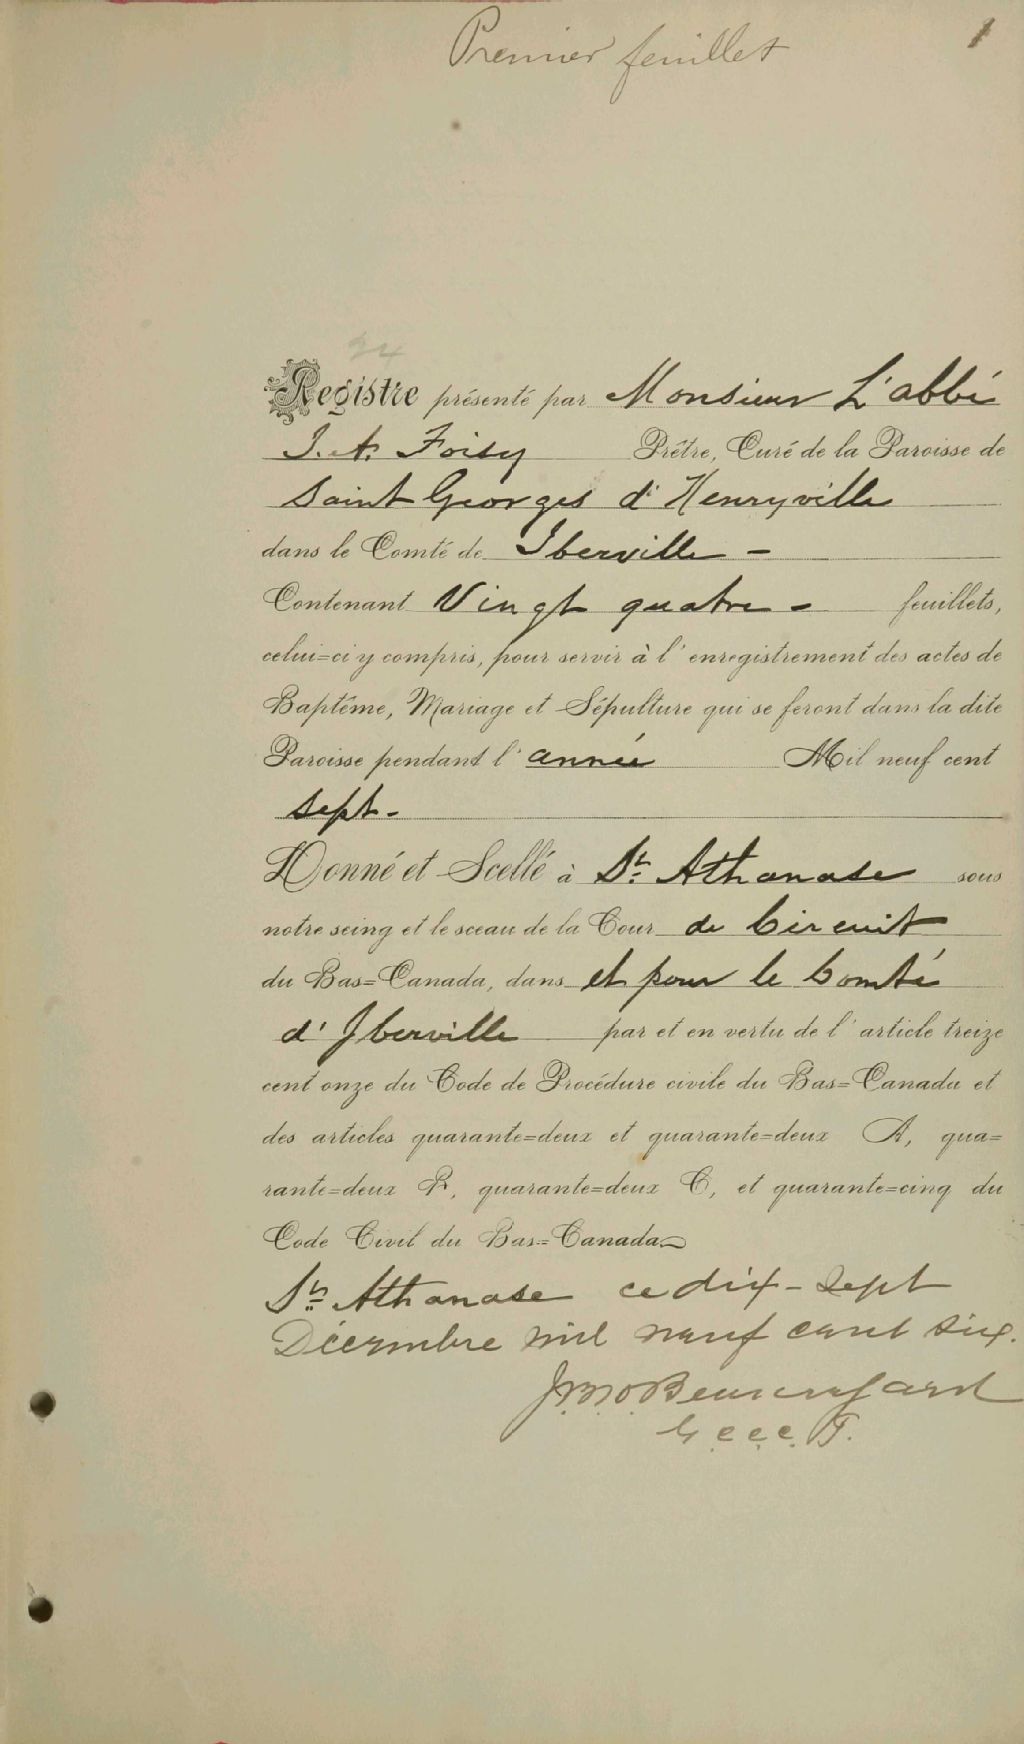 Premier feuillet
1
24
Registre présenté par Monsieur L'abbé
J. A. Foisy Prêtre, Curé de la Paroisse de
Saint Georges d'Henryville
dans le Comté de Iberville -
Contenant Vingt quatre - feuillets,
celui=ci y compris, pour servir à l'enregistrement des actes de
Baptême, Mariage et Sépulture qui se feront dans la dite
Paroisse pendant l'année Mil neuf cent
sept -
Donné et Scellé à St. Athanase sous
notre seing et le sceau de la Cour de Circuit
du Bas=Canada, dans et pour le Comté
d'Iberville par et en vertu de l'article treize
cent onze du Code de Procédure civile du Bas=Canada et
des articles quarante=deux et quarante=deux A, qua=
rante=deux B, quarante=deux C, et quarante=cinq du
Code Civil du Bas=Canada
St. Athanase ce dix-sept
Décembre mil neuf cent six.
Beauregard
C. C. C.